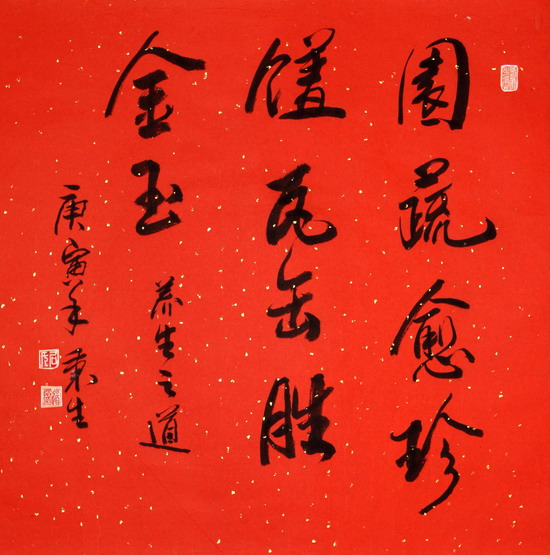 園蔬愈珍
饈瓦缶胜
金玉
养生之道
庚寅年秉生